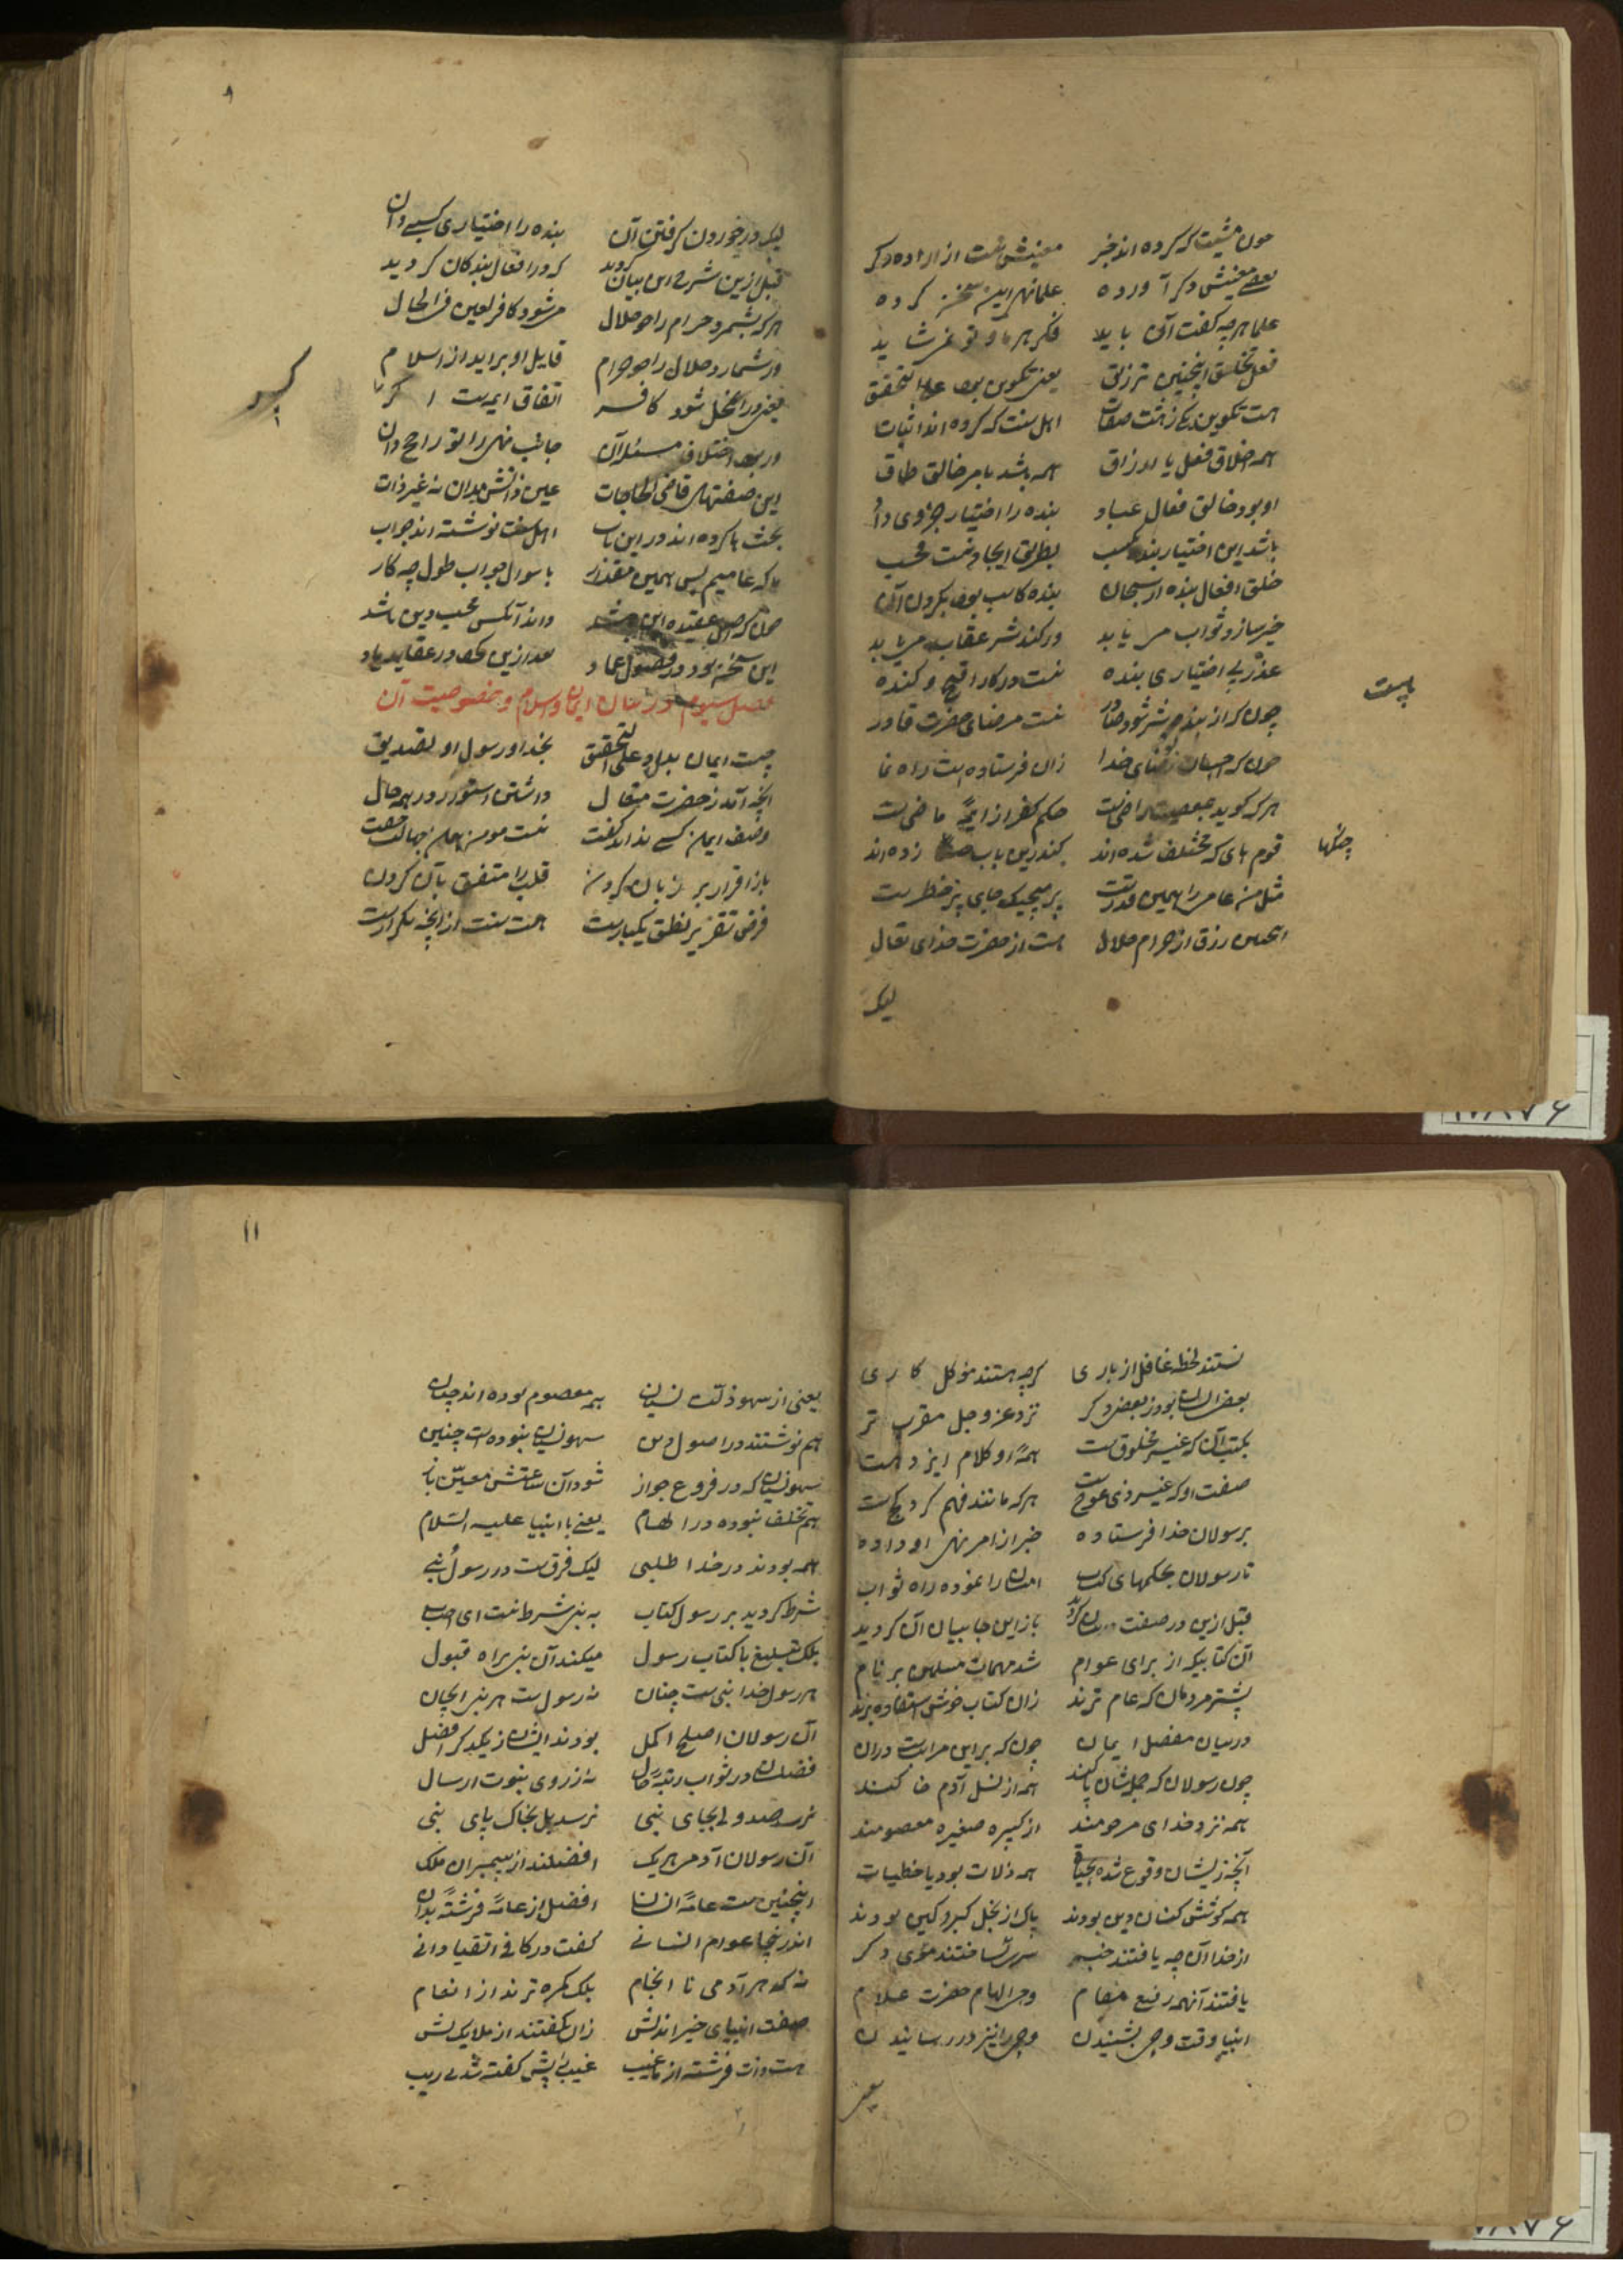 چون مشیت که کرده اند خبر معنیش نیست از اراده دکر
بعضی معنیش دکر آورده علما نهی این سخن کرده
علما هرچه گفت آن باید فکر هر ما و تو نمی شاید
فعل تخلیق اینچنین ترزیق یعنی تکوین بود علی التحقیق
هست تکوین یکی ز هشت صفات اهل سنت که کرده اند اثبات
همه اخلاق فعل با ارزاق همه باشد بامر خالق طاق
او بود خالق فعال عباد بنده را اختیار جزوی داد
باشد این اختیار بنده بکسب بطریق ایجاد نیست
خلق افعال بنده از سبحان بنده کاسب بود بکردن آن
خیر سازد ثواب می یابد ور کند شر عقاب می یابد
عذر بی اختیاری بنده نیست در کار قبیح و کننده
بایست
چون که از بنده شر شود صادر نیست مرضای حضرت قادر
چون که احسان رضای خدا زان فرستاده است راه نما
هر که کوید بمعصیت راضیست حکم کفر از ایمه ماضیست
قوم های که مختلف شده اند کندرین باب زده اند
چنکها
مثل من عامی را همین قدرتست بر میچیک جای پر خطرست
همچنین رزق از حرام حلال هست از حضرت خدای تعال
لیک
۸
لیک در خوردن کرفتن آن بنده را اختیاری کسبی دان
قبل ازین شرح این بیان کردید که در افعال بندکان کردید
هر که بشمرد حرام را چو حلال می شود کافر لعین فی الحال
ور شمارد حلال را چو حرام قایل او براید از اسلام
یعنی ورا مستحل شود کافر اتفاق ایمه است
در بود اختلاف مسئله آن جانب نهی را تو راجح دان
این صفتهای قاضی الحاجات عین ذاتش مدان نه غیر ذات
بحث ها کرده اند در این باب اهل سنت نوشته اند جواب
ما که عامیم بس همین مقدار با سوال جواب طول چه کار
اصل عقیده این باشد داند آنکس محب دین باشد
این سخن بود در فصول عماد بعد ازین در عقاید باد
فصل سیوم در بیان ایمان و اسلام و خصوصیت آن
چیست ایمان بدل علی التحقیق بخدا و رسول او تصدیق
آنچه آمد ز حضرت متعال داشتن استور در همه حال
وصف ایمان کسی نداند گفت نیست مومن جهالت
باز اقرار بر زبان کردن قلب را متفق بآن کردن
فرض تقریر نطق یکبارست هست سنت از آنچه تکرارست
نیستند لحظه غافل از باری گرچه هستند مؤکل کاری
بعض ایشان بود ز بعض دکر نزد عز و جل مقرب تر
بکتب آن که غیر مخلوق است همه او کلام ایزد است
صفت او که غیر ذی عوج است هر که مانند فهم کرد کج است
برسولان خدا فرستاده خبر از امر نهی او داده
تا رسولان بحکمهای کتاب امتان را نموده راه ثواب
قبل ازین در صفت بیان کردید باز این جا بیان آن کردید
آن کتابیکه از برای عوام شد مهمات مسلمین بر نام
بیشتر مردمان که عام ترند زان کتاب خوش استفاده برند
در بیان مفصل ایمان چون که بر این مراتبست دران
چون رسولان که جمله شان پاکند همه از نسل آدم خاکند
همه نزد خدای مرحومند از کبیره صغیره معصومند
آنچه زیشان وقوع شده بحیات همه زلات بود یا خطیات
همه کوشش کنان دین بودند پاک از بخل کبر و کین بودند
از خدا آن چه یافتند خبر می شتافتند سوی دکر
یافتند آنهمه رفیع مقام وحی الهام حضرت علام
انبیا وقت وحی بشنیدن وحی را نیز در رسانیدن
یعنی
۱۱
یعنی از سهو ذلت نسیان همه معصوم بوده اند چنان
هم نوشتند در اصول دین سهو نسیان نبوده است چنین
سهو نسیان که در فروع جواز شود آن ساعتش معین باز
هم تخلف نبوده در الهام یعنی با انبیا علیه السلام
همه بودند در خدا طلبی لیک فرق است در رسول نبی
شرط کردید بر رسول کتاب به نبی شرط نیست ای اصحاب
بلک تبلیغ با کتاب رسول میکند آن نبی براه قبول
هر رسول خدا نبی ست چنان نه رسول ست هر نبی
آن رسولان اصلح اکمل بودند ایشان ز یکدکر افضل
فضلشان در ثواب رتبه نه ز روی نبوت ارسال
نرسد صد ولی بجای نبی نرسد بل بخاک پای نبی
آن رسولان آدمی هر یک افضلند از پیمبران ملک
اینچنین ست عامه انسان افضل از عامه فرشته بدان
اندرینجا عوام انسانی گفت در کافی اتقیا دانی
نه که هر آدمی نا انجام بلک گمره ترند از انعام
صفت انبیای خیر اندیش زان بگفتند از ملایک پیش
هست ذات فرشته از ما غیب غیب پیش گفته شد بی ریب